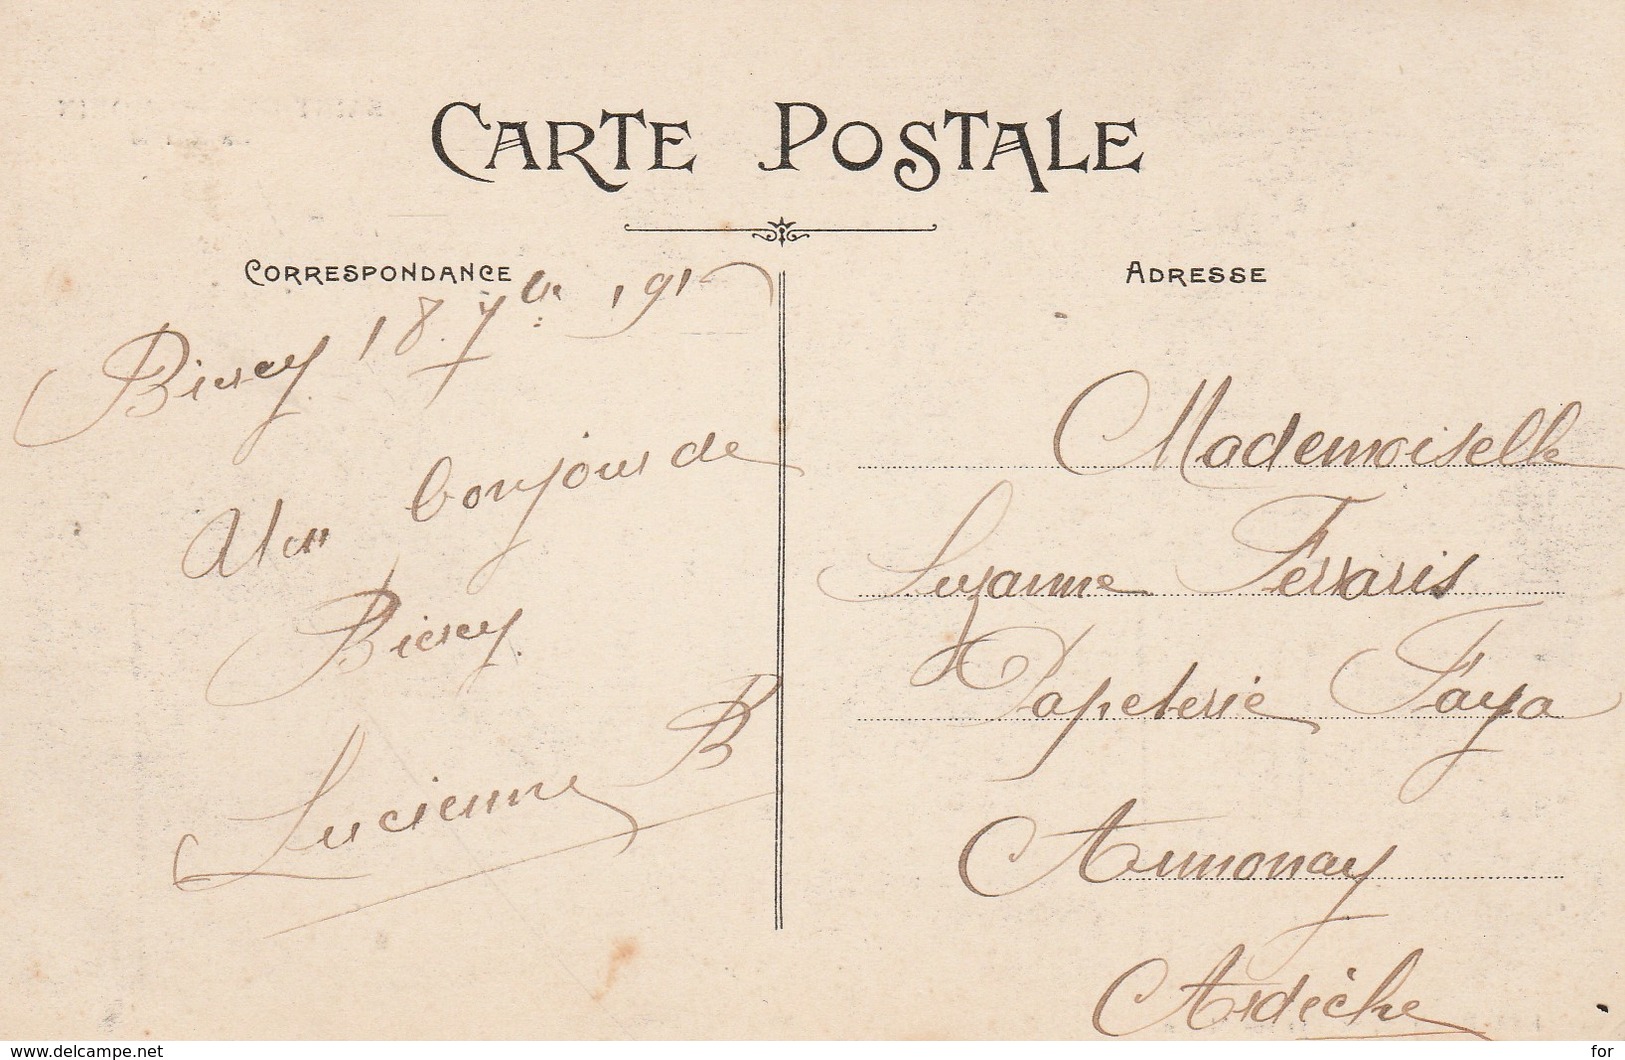 CARTE POSTALE
CORRESPONDANCE
ADRESSE
18 7bre 191
Un bonjour de
Lucienne B
Mademoiselle
Suzanne Ferraris
Papeterie Faya
Annonay
Ardèche
www.delcampe.net
for